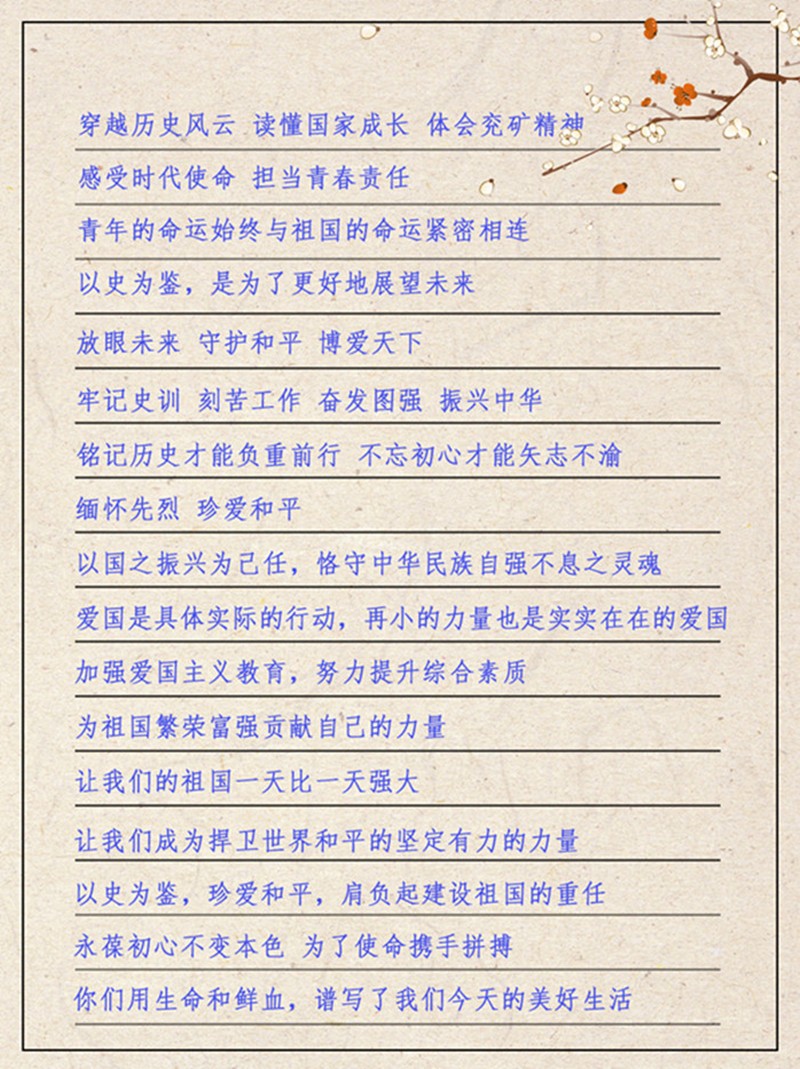 穿越历史风云 读懂国家成长 体会兖矿精神
感受时代使命 担当青春责任
青年的命运始终与祖国的命运紧密相连
以史为鉴，是为了更好地展望未来
放眼未来 守护和平 博爱天下
牢记史训 刻苦工作 奋发图强 振兴中华
铭记历史才能负重前行 不忘初心才能矢志不渝
缅怀先烈 珍爱和平
以国之振兴为己任，恪守中华民族自强不息之灵魂
爱国是具体实际的行动，再小的力量也是实实在在的爱国
加强爱国主义教育，努力提升综合素质
为祖国繁荣富强贡献自己的力量
让我们的祖国一天比一天强大
让我们成为捍卫世界和平的坚定有力的力量
以史为鉴，珍爱和平，肩负起建设祖国的重任
永葆初心不变本色 为了使命携手拼搏
你们用生命和鲜血，谱写了我们今天的美好生活